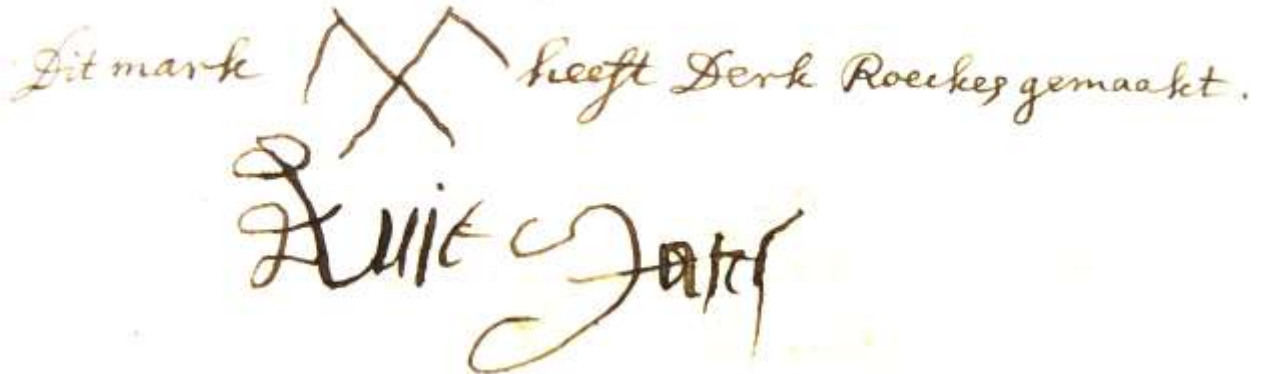 Dit mark heeft Derk Roeckes gemaakt.
Luit Jans